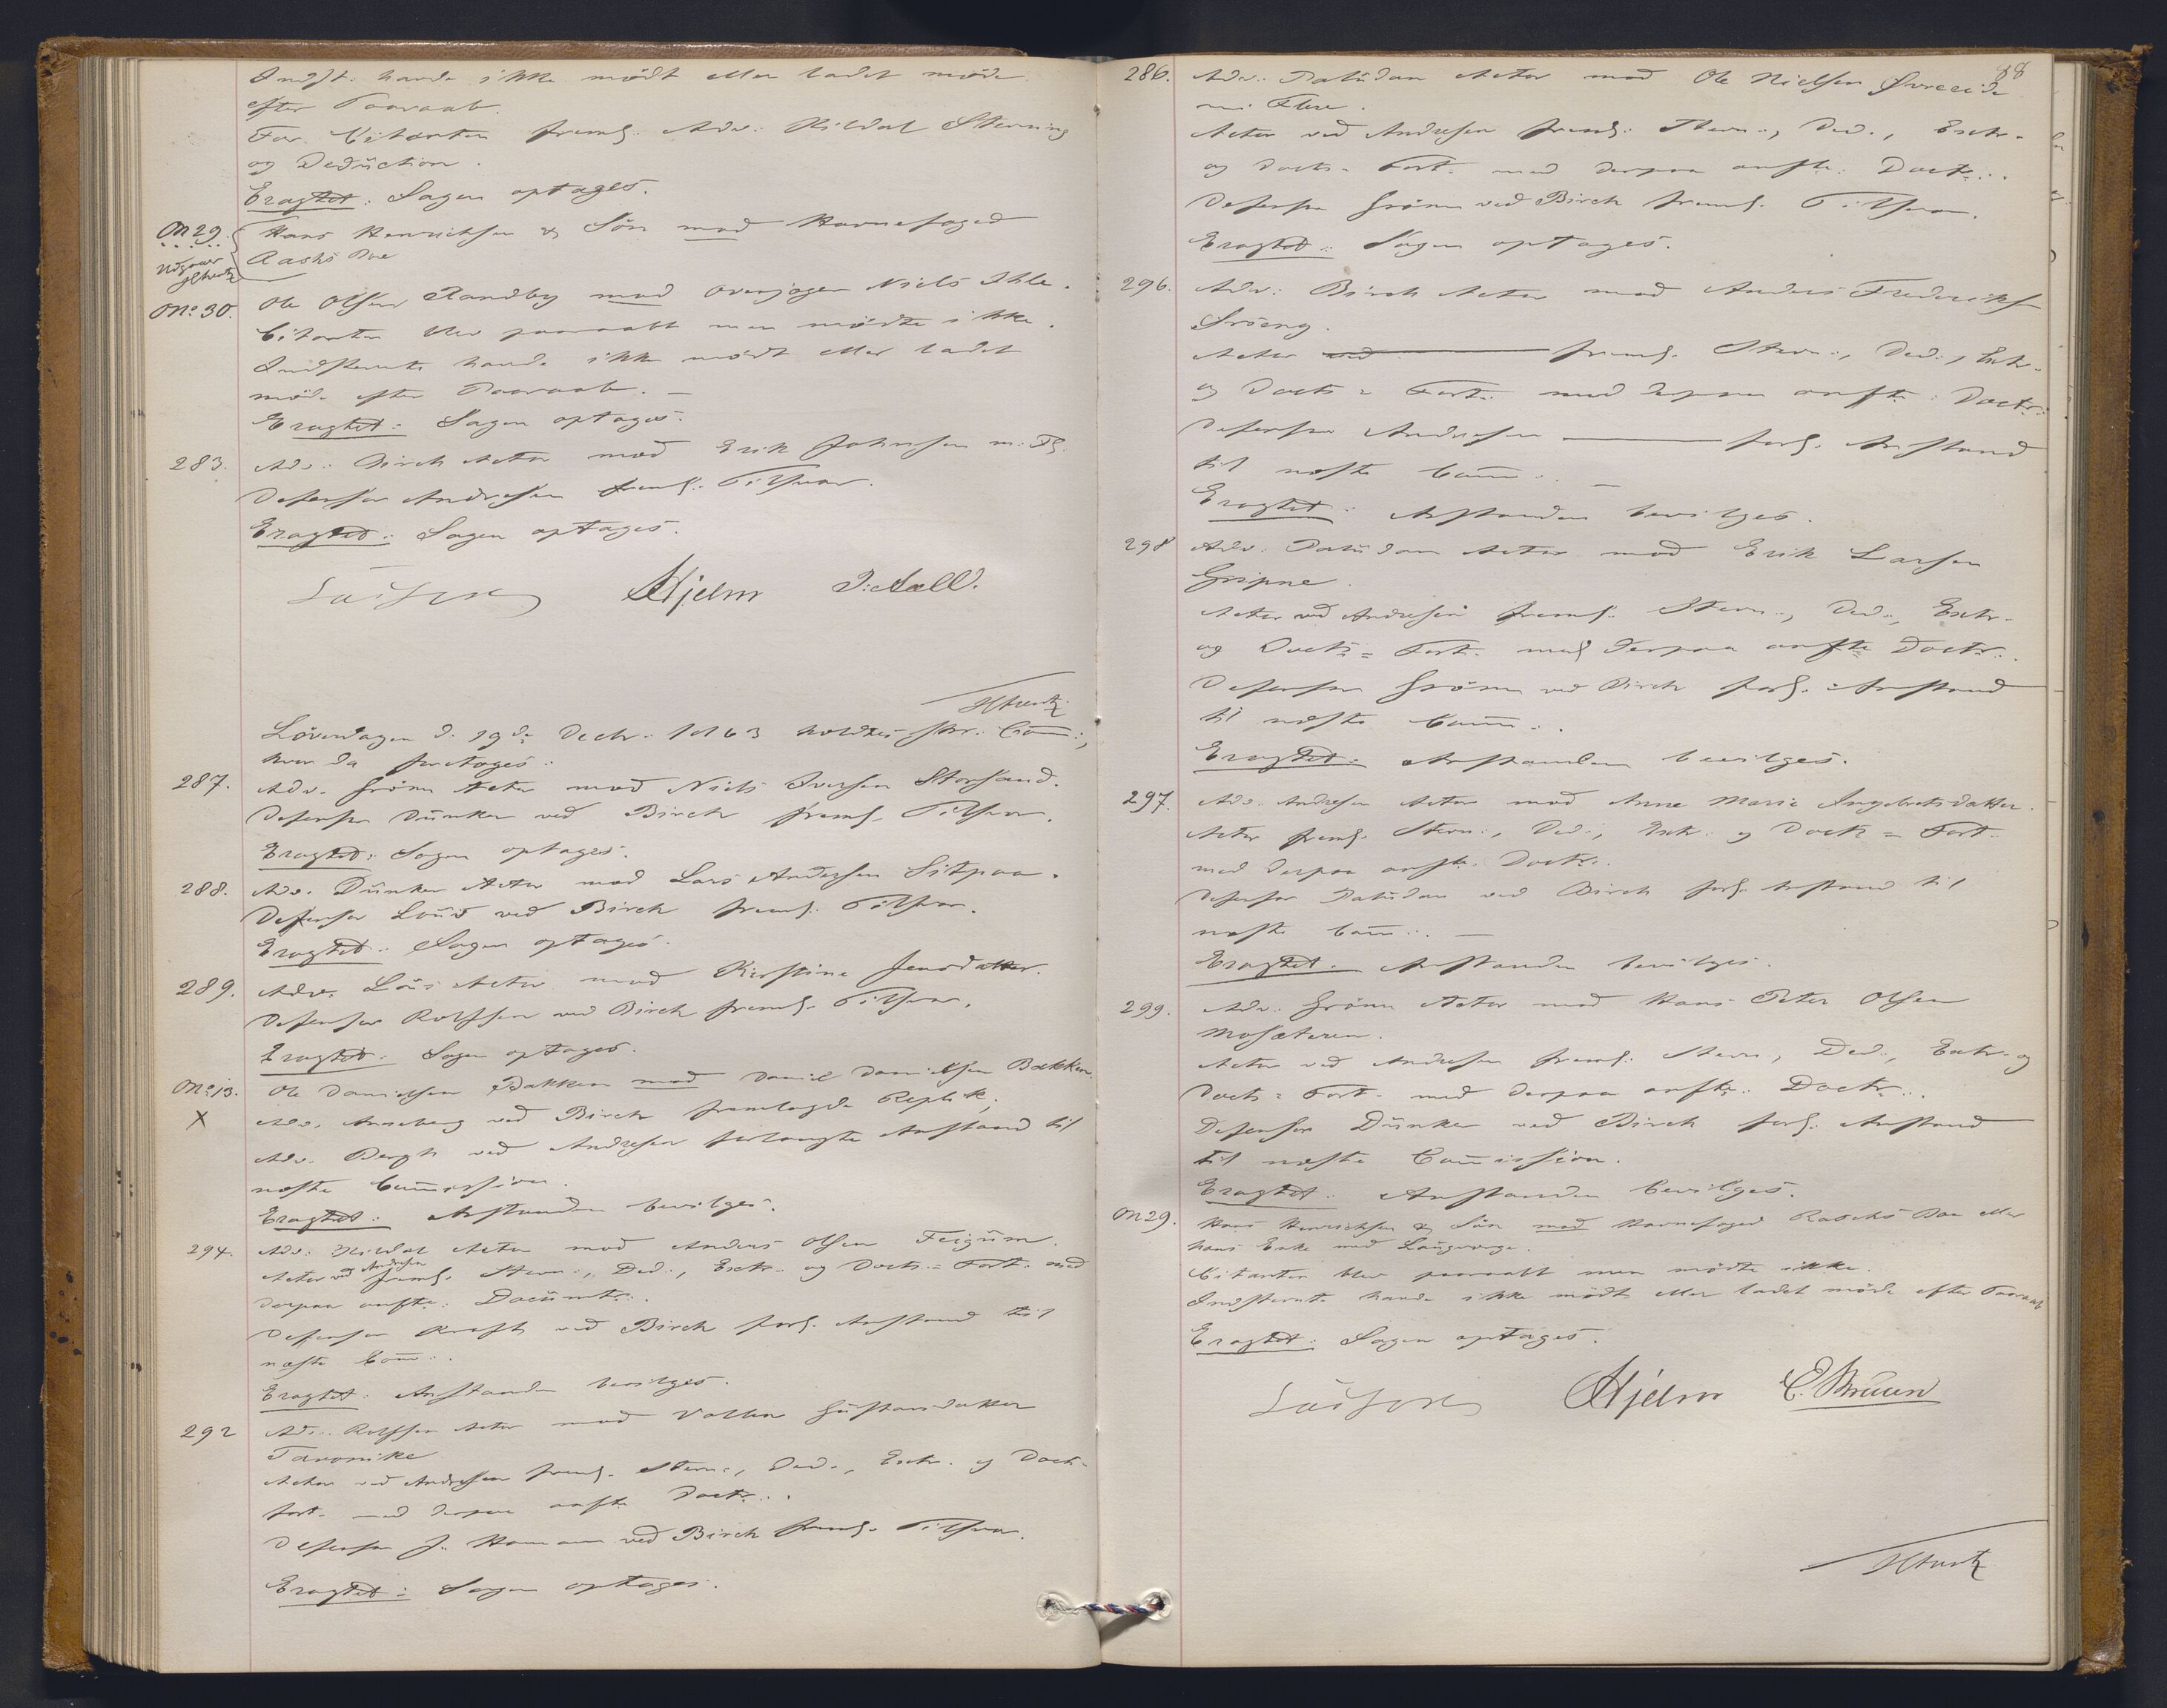 Indst. havde ikke mödt eller ladet möde
efter Paaraab.
For Citanten freml. Adv: Kildal Stevning
og Deduction.
Eragtet: Sagen optages.
No 29. Hans Henrichsen & Sön mod Havnefoged
Udgaaer Raschs Boe
No 30. Ole Olsen Randby mod Overjæger Niels Ihle.
Citanten blev paaraabt men mödte ikke.
Indstevnte havde ikke mödt eller ladet
möde efter Paaraab. –
Eragtet: Sagen optages.
283. Adv: Birch Actor mod Erik Johnsen m: Fl.
Defensor Andresen freml: Tilsvar.
Eragtet: Sagen optages.
Hjelm J: Aall.
Löverdagen d. 19de Decbr. 1863 holdtes Com:,
hvor da foretoges:
287. Adv. Grönn Actor mod Niels Iversen Storsand.
Defensor Dunker ved Birch freml. Tilsvar.
Eragtet: Sagen optages.
288. Adv. Dunker Actor mod Lars Andersen Sitpaa.
Defensor Lous ved Birch freml: Tilsvar.
Eragtet: Sagen optages.
289. Adv. Lous Actor mod Kirstine Jensdatter.
Defensor Rolfsen ved Birch freml. Tilsvar.
Eragtet: Sagen optages.
No 13. Ole Danielsen Bakken mod Daniel Danielsen Bakken.
X Adv. Anneberg ved Birch fremlagde Replik;
Adv. Bergh ved Andresen forlangte Anstand til
næste Commission.
Eragtet: Anstanden bevilges.
294. Adv: Kildal Actor mod Anders Olsen Feigum.
Actor ved Andresen freml. Stevn:, Ded:, Extr. og Docts = Fort. med
derpaa anfte: Documtr:.
Defensor Kraft ved Birch forl. Anstand til
næste Comm:.
Eragtet: Anstanden bevilges.
292 Adv: Rolfsen Actor mod Valben Gustavsdatter
Tavonike
Actor ved Andresen freml. Stevn:, Ded:, Extr. og Doct-
fort. med derpaa anfte Doctr:.
Defensor J: Homann ved Birch freml. Tilsvar.
Eragtet: Sagen optages.
88
286. Adv: Paludan Actor mod Ole Nielsen Övreeide
m: Flere.
Actor ved Andresen freml: Stevn:, Ded:, Extr.
og Docts = Fort. med derpaa anfte: Doctr:.
Defensor Grönn ved Birch freml. Tilsvar.
Eragtet: Sagen optages.
296. Adv: Birch Actor mod Anders Frederiks
Actor ved freml. Stevn:, Ded:, Extr.
og Docts = Fort: med derpaa anfte: Doctr:
Defensor Andresen ——— forl. Anstand
til næste Comm:. –
Eragtet: Anstanden bevilges.
298 Adv: Paludan Actor mod Erik Larsen
Gripne.
Actor ved Andresen freml: Stevn:, Ded:, Extr.
og Docts = Fort. med derpaa anfte Doctr:.
Defensor Grönn ved Birch forl. Anstand
til næste Comm:.
Eragtet: Anstanden bevilges.
297. Adv: Andresen Actor mod Anne Marie Ingebretsdatter.
Actor freml. Stevn:, Ded:, Extr: og Docts = Fort.
med derpaa anfte. Doctr:.
Defensor Paludan ved Birch forl. Anstand til
næste Comm:. –
Eragtet: Anstanden bevilges.
299. Adv: Grönn Actor mod Hans Peter Olsen
Mosæteren.
Actor ved Andresen freml: Stevn:, Ded:, Extr. og
Docts = Fort. med derpaa anfte: Doctr:.
Defensor Dunker ved Birch forl. Anstand
til næste Commission.
Eragtet: Anstanden bevilges.
No 29. Hans Henrichsen & Sön mod Havnefoged Raschs Boe eller
hans Enke med Laugværge.
Citanten blev paaraabt men mödte ikke.
Indstevnte havde ikke mödt eller ladet möde efter Paaraab
Eragtet: Sagen optages.
Hjelm E. Bruun